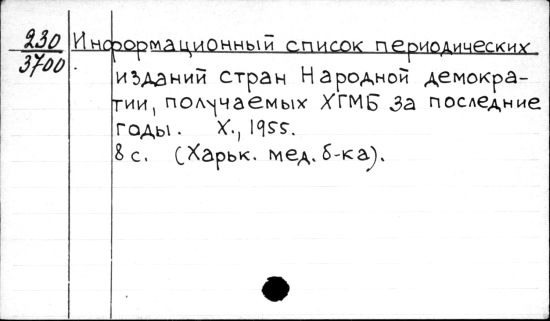 230 Информационный список периодических
3700 изданий стран Народной демокра-
тии, получаемых ХГМБ за последние
годы. Х., 1955.
8 с. (Харьк. мед. б-ка).